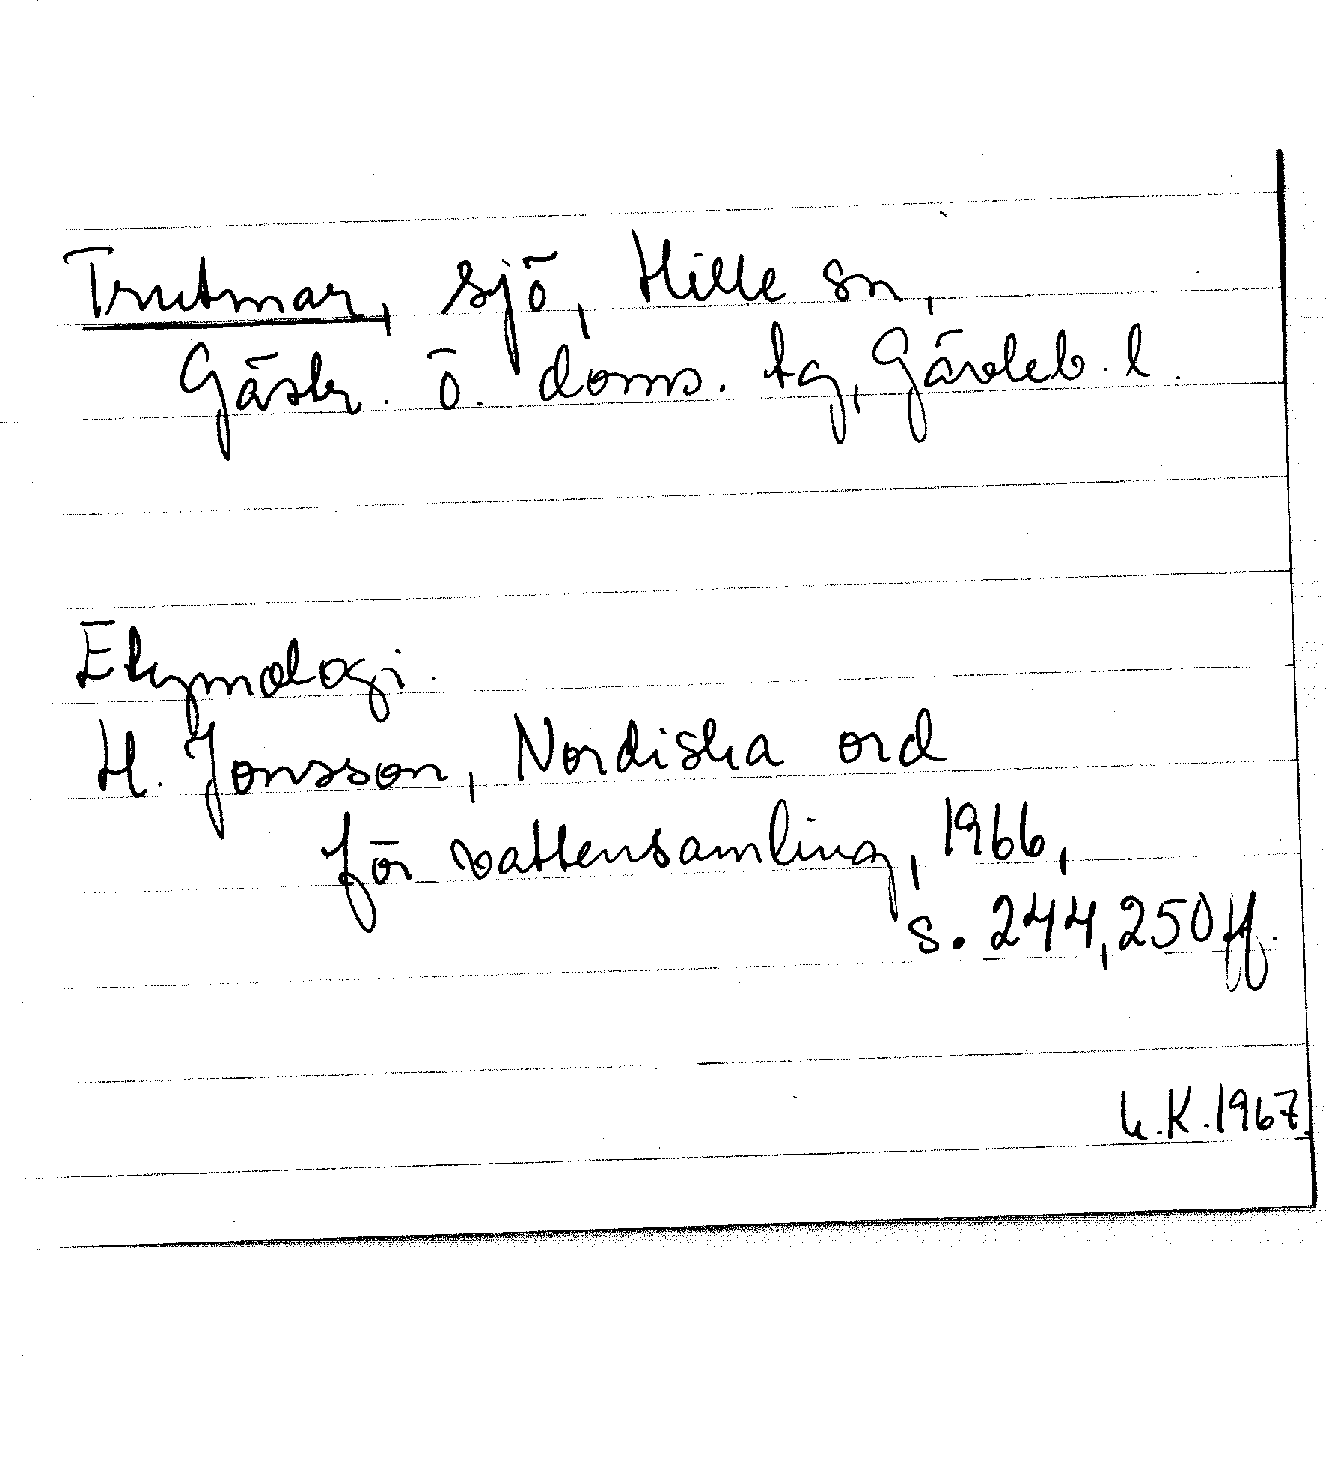 Trutmar, sjö, Hille sn,
Gästr. ö. doms. tg, Gävleb. l.
Etymologi.
H. Jonsson, Nordiska ord
för vattensamling, 1966,
s. 244, 250 ff.
K. 1967